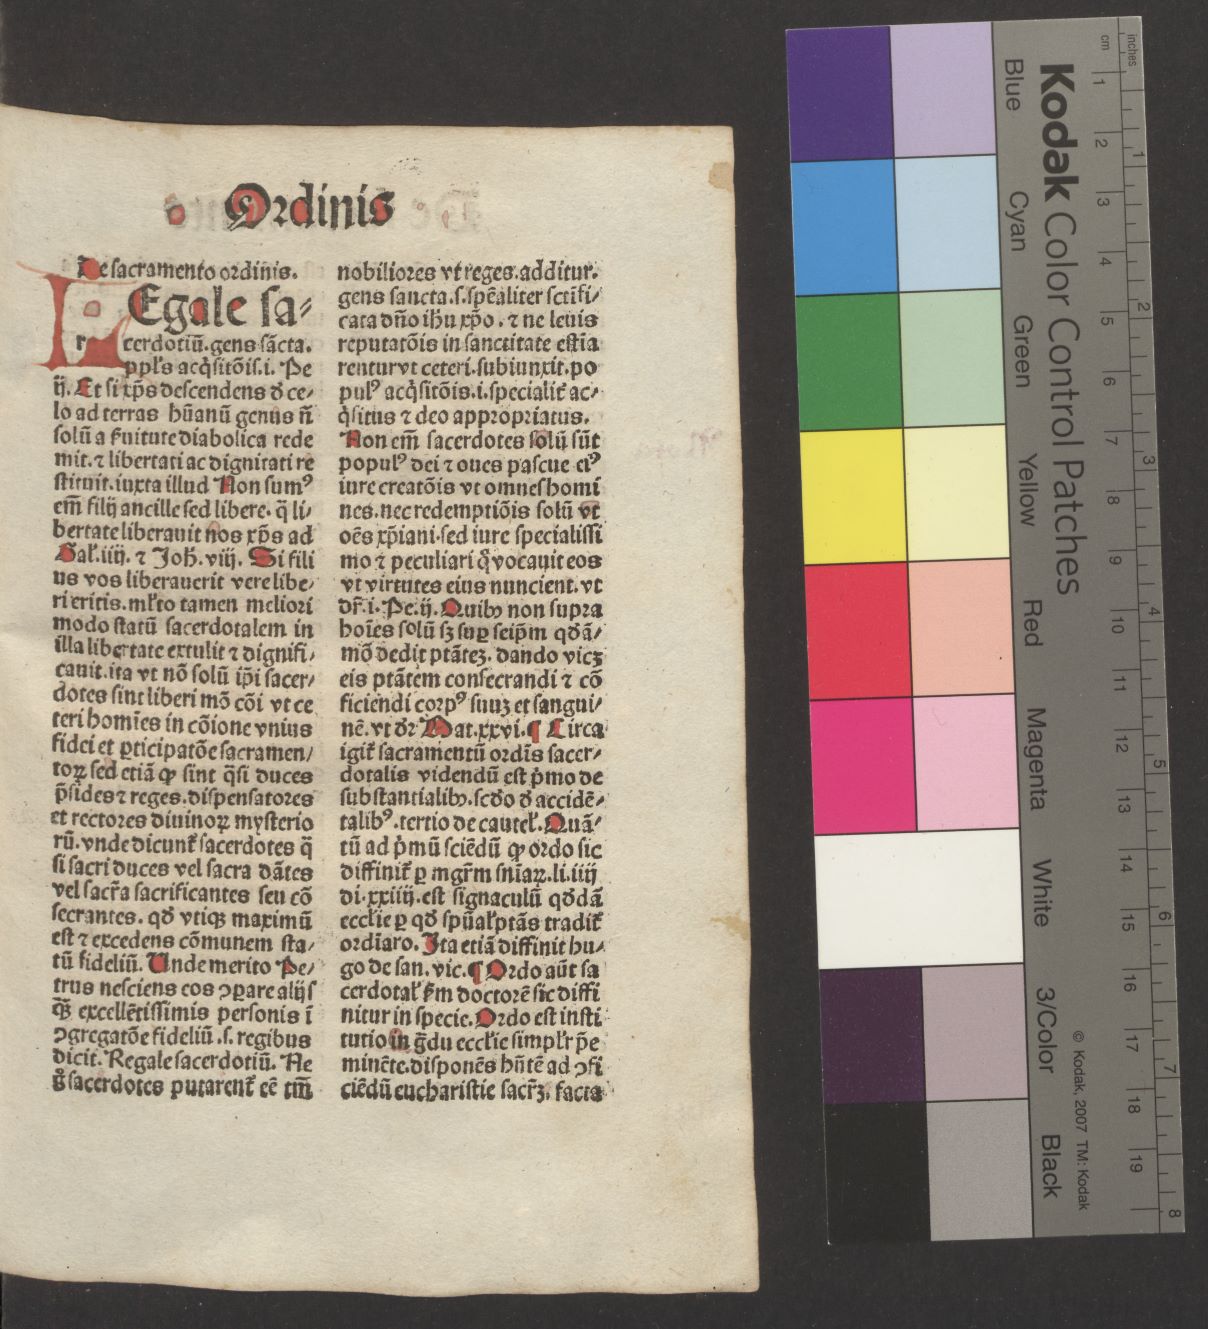 Ordinis
De sacramento ordinis.
Egale sa⸗
r cerdotiũ. gens sãcta.
ppl's acq̇sitõis. i. Pe
ij. Et si xp̃s descendens ð ce⸗
lo ad terras hũanũ genus ñ
solũ a ẜuitute diabolica rede
mit. ⁊ libertati ac dignitati re
stituit. iuxta illud Non sumꝰ
em̃ filij ancille sed libere. q̃ li⸗
bertate liberauit nos xp̃s ad
Gal. iiij. ⁊ Joh. viij. Si fili
us vos liberauerit vere libe⸗
ri eritis. ml'to tamen meliori
modo statũ sacerdotalem in
illa libertate extulit ⁊ dignifi⸗
cauit. ita vt nõ solũ ip̃i sacer⸗
dotes sint liberi mõ cõi vt ce
teri homĩes in cõione vnius
fidei et ꝑticipatõe sacramen⸗
toꝝ sed etiã ꝙ sint q̃si duces
p̃sides ⁊ reges. dispensatores
et rectores diuinoꝝ mysterio
rũ. vnde dicunt᷑ sacerdotes q̃
si sacri duces vel sacra dãtes
vel sacr̃a sacrificantes seu cõ
secrantes. qð vtiqꝫ maximũ
est ⁊ excedens cõmunem sta⸗
tũ fideliũ. Unde merito Pe⸗
trus nesciens eos ꝯparare alijs
qꝫ excellẽtissimis personis ĩ
ꝯgregatõe fideliũ. s. regibus
dicit. Regale sacerdotiũ. Ne
ꝟo sacerdotes putarent᷑ eẽ tm̃
nobiliores vt reges. additur.
gens sancta. s. spẽaliter sctĩfi⸗
cata dño ihu xp̃o. ⁊ ne leuis
reputatõis in sanctitate estia
rentur vt ceteri. subiunxit. po
pulꝰ acq̇sitõis. i. specialit᷑ ac⸗
q̇situs ⁊ deo appropriatus.
Non em̃ sacerdotes solũ sũt
populꝰ dei ⁊ oues pascue eiꝰ
iure creatõis vt omnes homĩ
nes. nec redemptiõis solũ vt
oẽs xp̃iani. sed iure specialissi
mo ⁊ peculiari q̃ vocauit eos
vt virtutes eius nuncient. vt
dr̃. i. Pe. ij. Quibꝰ non supra
hoĩes solũ sꝫ suꝑ seip̃m qðã⸗
mõ dedit ptãteꝫ. dando viceꝫ
eis ptãtem consecrandi ⁊ cõ
ficiendi corpꝰ suuꝫ et sangui⸗
nẽ. vt ðr Mat. xxvi. ¶ Circa
igit᷑ sacramentũ ordĩs sacer⸗
dotalis videndũ est ṗmo de
substantialibꝰ. scðo ð accidẽ⸗
talibꝰ. tertio de cautel'. Quã⸗
tũ ad ṗmũ sciẽdũ ꝙ ordo sic
diffinit᷑ ꝑ mgr̃m snĩaꝝ. li. iiij
di. xxiiij. est signaculũ qðdã
eccl'ie ꝑ qð spũal' ptãs tradit᷑
ordĩaro. Ita etiã diffinit hu⸗
go de san. vic. ¶ Ordo aũt sa
cerdotal' ẜm doctorẽ sic diffi
nitur in specie. Ordo est insti
tutio in g̃du eccl'ie simpl'r p̃e
minẽte. disponẽs hñtẽ ad ꝯfi
ciẽdũ eucharistie sacr̃ꝫ. facta
Kodak Color Control Patches
inches
cm
Blue
Cyan
Green
Yellow
Red
Magenta
White
3/Color
Black
© Kodak, 2007 TM: Kodak
1 2 3 4 5 6 7 8 9 10 11 12 13 14 15 16 17 18 19
1 2 3 4 5 6 7 8